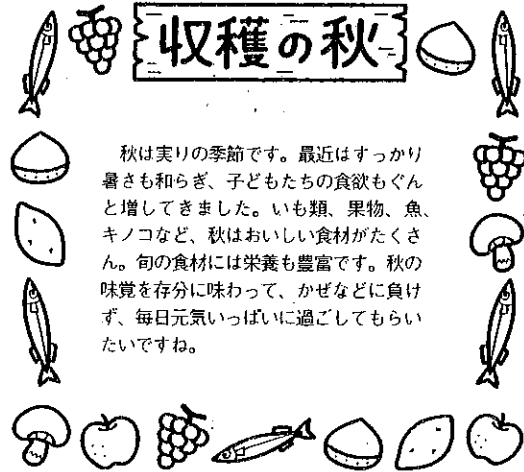 収穫の秋
秋は実りの季節です。最近はすっかり
暑さも和らぎ、子どもたちの食欲もぐん
と増してきました。いも類、果物、魚、
キノコなど、秋はおいしい食材がたくさ
ん。旬の食材には栄養も豊富です。秋の
味覚を存分に味わって、かぜなどに負け
ず、毎日元気いっぱいに過ごしてもらい
たいですね。